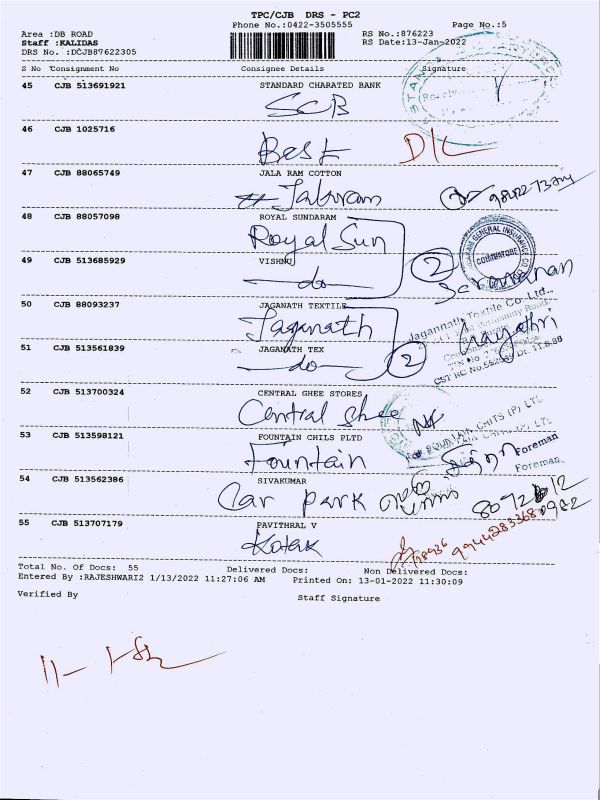 TPC/CJB DRS - PC2
Phone No.:0422-3505555
Page No.:5
Area :DB ROAD
RS No.:876223
Staff :KALIDAS
RS Date:13-Jan-2022
DRS No. :DCJB87622305
S No Consignment No Consignee Details Signature
45 CJB 513691921 STANDARD CHARATED BANK
SCB
46 CJB 1025716
Best D/L
47 CJB 88065749 JALA RAM COTTON
Jalaram
48 CJB 88057098 ROYAL SUNDARAM
Royal Sun
49 CJB 513685929 VISHNU
do 2
Saravanan
50 CJB 88093237 JAGANATH TEXTILE
Jaganath
Jagannath Textile Co. Ltd.,
Gayathri
51 CJB 513561839 JAGANATH TEX
do 2
52 CJB 513700324 CENTRAL GHEE STORES
Central Ghee
53 CJB 513598121 FOUNTAIN CHILS PLTD
Fountain
FOUNTAIN CHITS (P) LTD
Foreman
Foreman
54 CJB 513562386 SIVAKUMAR
Car Park
55 CJB 513707179 PAVITHRAL V
Kotak
Total No. Of Docs: 55 Delivered Docs: Non Delivered Docs:
Entered By :RAJESHWARI2 1/13/2022 11:27:06 AM Printed On: 13-01-2022 11:30:09
Verified By Staff Signature